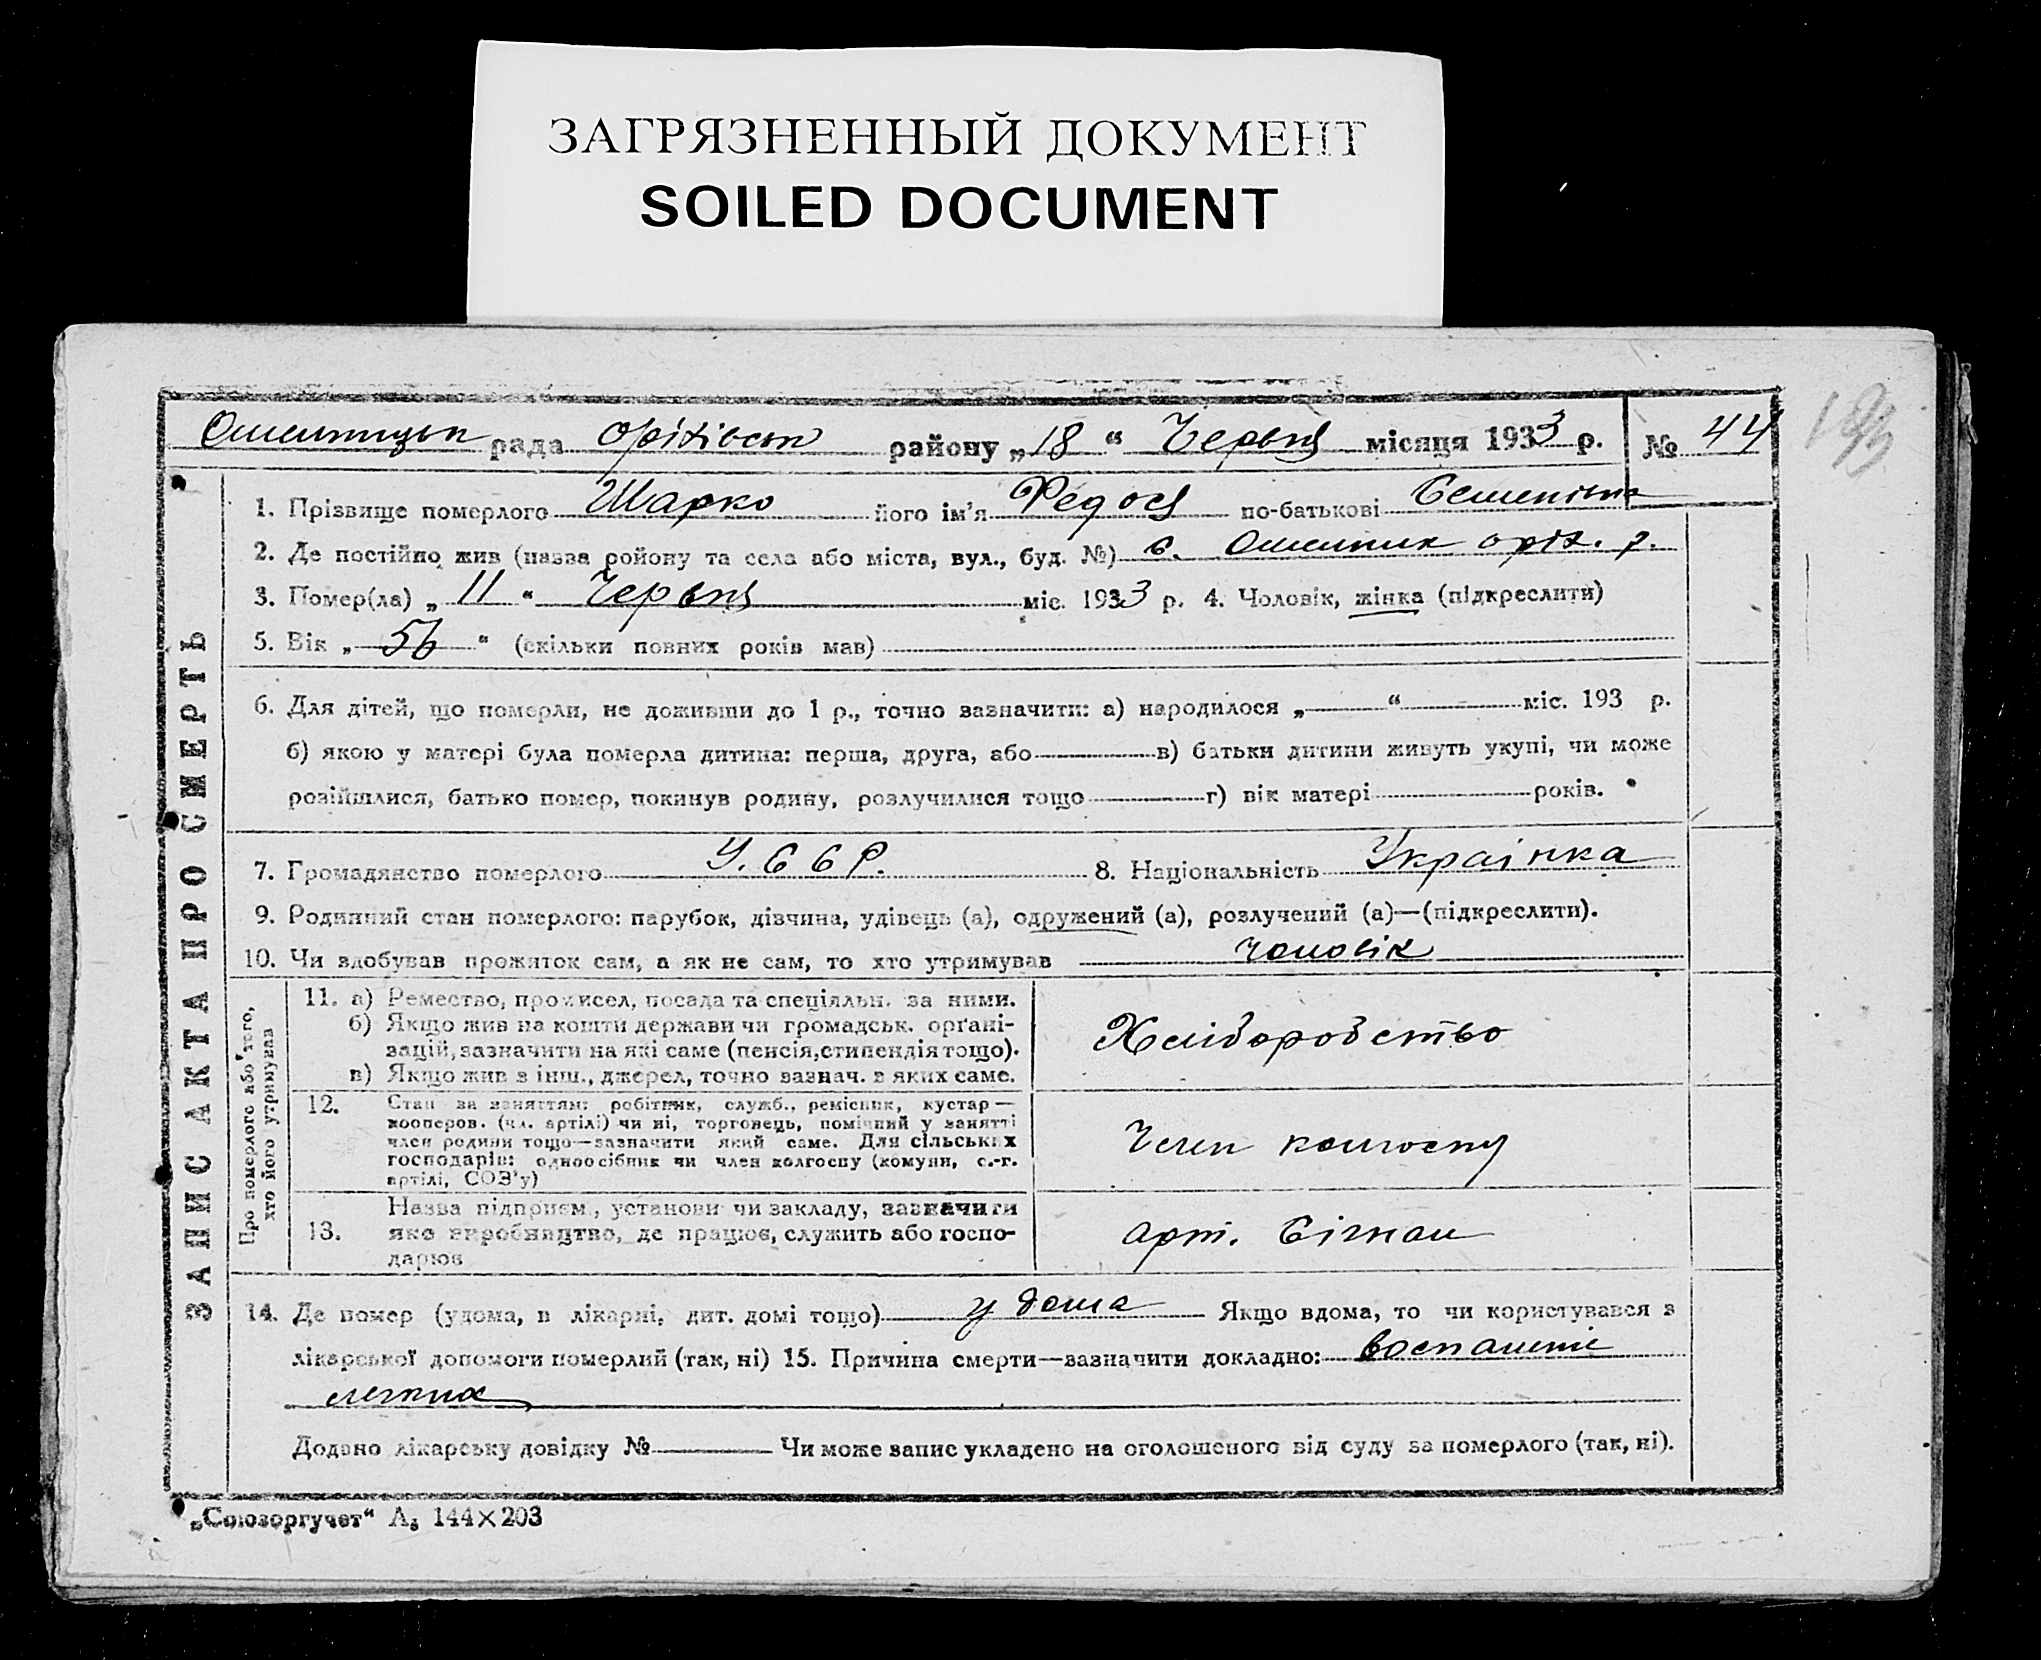 ЗАГРЯЗНЕННЫЙ ДОКУМЕНТ
SOILED DOCUMENT
рада Оріхівськ району „18“ Червня місяця 1933 р. № 44
1. Прізвище померлого Шарко його ім’я Федося по-батькові Семенівна
2. Де постійно жив (назва ройону та села або міста, вул., буд. №) с. оріх. р.
3. Помер(ла) „11“ Червня міс. 1933 р. 4. Чоловік, жінка (підкреслити)
5. Вік „56“ (скільки повних років мав)
6. Для дітей, що померли, не доживши до 1 р., точно зазначити: а) народилося „ “ міс. 193 р.
б) якою у матері була померла дитина: перша, друга, або в) батьки дитини живуть укупі, чи може
розійшлися, батько помер, покинув родину, розлучилися тощо г) вік матері років.
7. Громадянство померлого У.С.С.Р. 8. Національність Українка
9. Родинний стан померлого: парубок, дівчина, удівець (а), одружений (а), розлучений (а)—(підкреслити).
10. Чи здобував прожиток сам, а як не сам, то хто утримував чоловік
ЗАПИС АКТА ПРО СМЕРТЬ
Про померлого або того, хто його утримував
11. а) Ремество, промисел, посада та спеціяльн. за ними.
б) Якщо жив на кошти держави чи громадськ. орґані-
зацій, зазначити на які саме (пенсія, стипендія тощо).
в) Якщо жив з інш., джерел, точно зазнач. з яких саме.
Хліборобство
12. Стан за заняттям: робітник, служб., ремісник, кустар—
кооперов. (чл. артілі) чи ні, торговець, помічний у занятті
член родини тощо—зазначити який саме. Для сільських
господарів: одноосібник чи член колгоспу (комуни, с.-г.
артілі, СОЗ’у)
Член колгоспу
13. Назва підприєм., установи чи закладу, зазначити
яке виробництво, де працює, служить або госпо-
дарює
арт. Сігнал
14. Де помер (удома, в лікарні, дит. домі тощо) у дома Якщо вдома, то чи користувався з
лікарської допомоги померлий (так, ні) 15. Причина смерти—зазначити докладно: воспаленіє
легких
Додано лікарську довідку № Чи може запис укладено на оголошеного від суду за померлого (так, ні).
„Союзоргучет“ А₅ 144×203